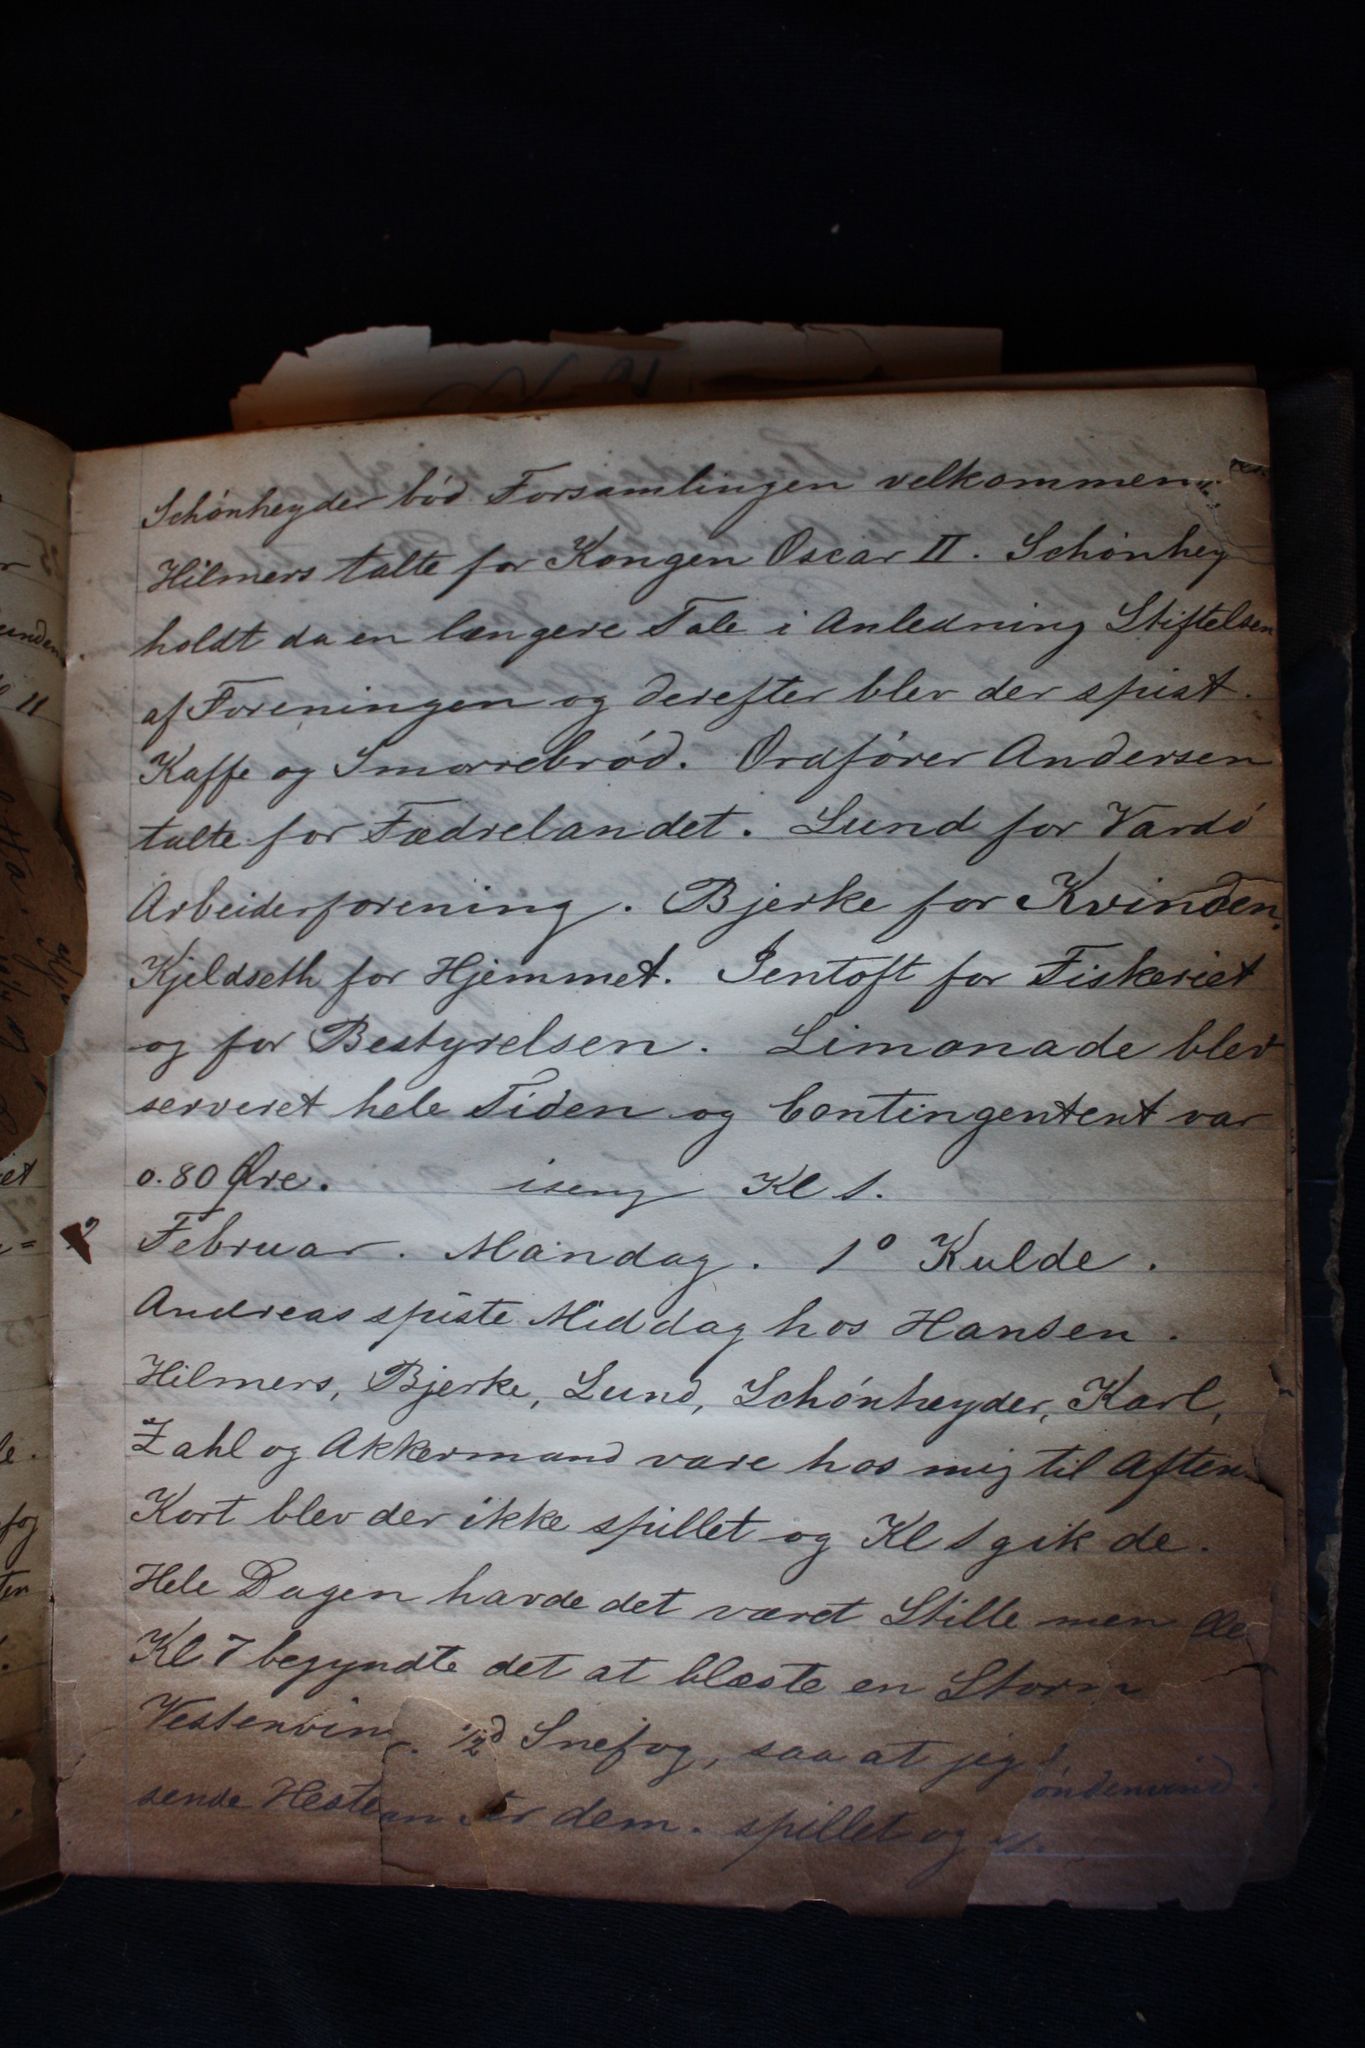 Schönheyder bød Forsamlingen velkommen
Hilmers talte for Kongen Oscar II. Schönhey
holdt da en længere Tale i Anledning Stiftelsen
af Foreningen og derefter blev der spist.
Kaffe og Smørrebrød. Ordfører Andersen
talte for Fædrelandet. Lund for Vardø
Arbeiderforening. Bjerke for Kvinden.
Kjeldseth for Hjemmet. Jentoft for Fiskeriet
og for Bestyrelsen. Limonade blev
serveret hele Tiden og Contingentent var
0.80 Øre. iseng Kl 1.
2 Februar. Mandag. 1° Kulde.
Andreas spiste Middag hos Hansen.
Hilmers, Bjerke, Lund, Schönheyder, Karl,
Zahl og Akkermand vare hos mig til Aften
Kort blev der ikke spillet og Kl 1 gik de.
Hele Dagen havde det været Stille men
Kl 7 begyndte det at blæste en Storm
Vestenvin Snefog, saa at jeg
sende Hesten dem. spillet og
øndenvind.